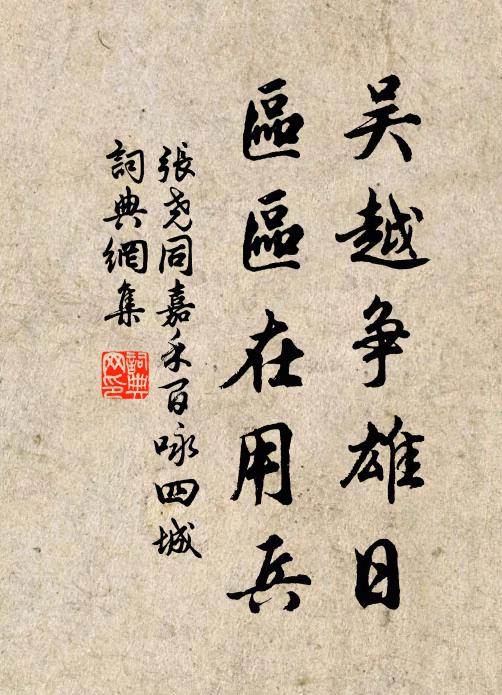 吴越争雄日
區區在用兵
張尧同嘉禾百咏四城
詞典網集
詞典網印